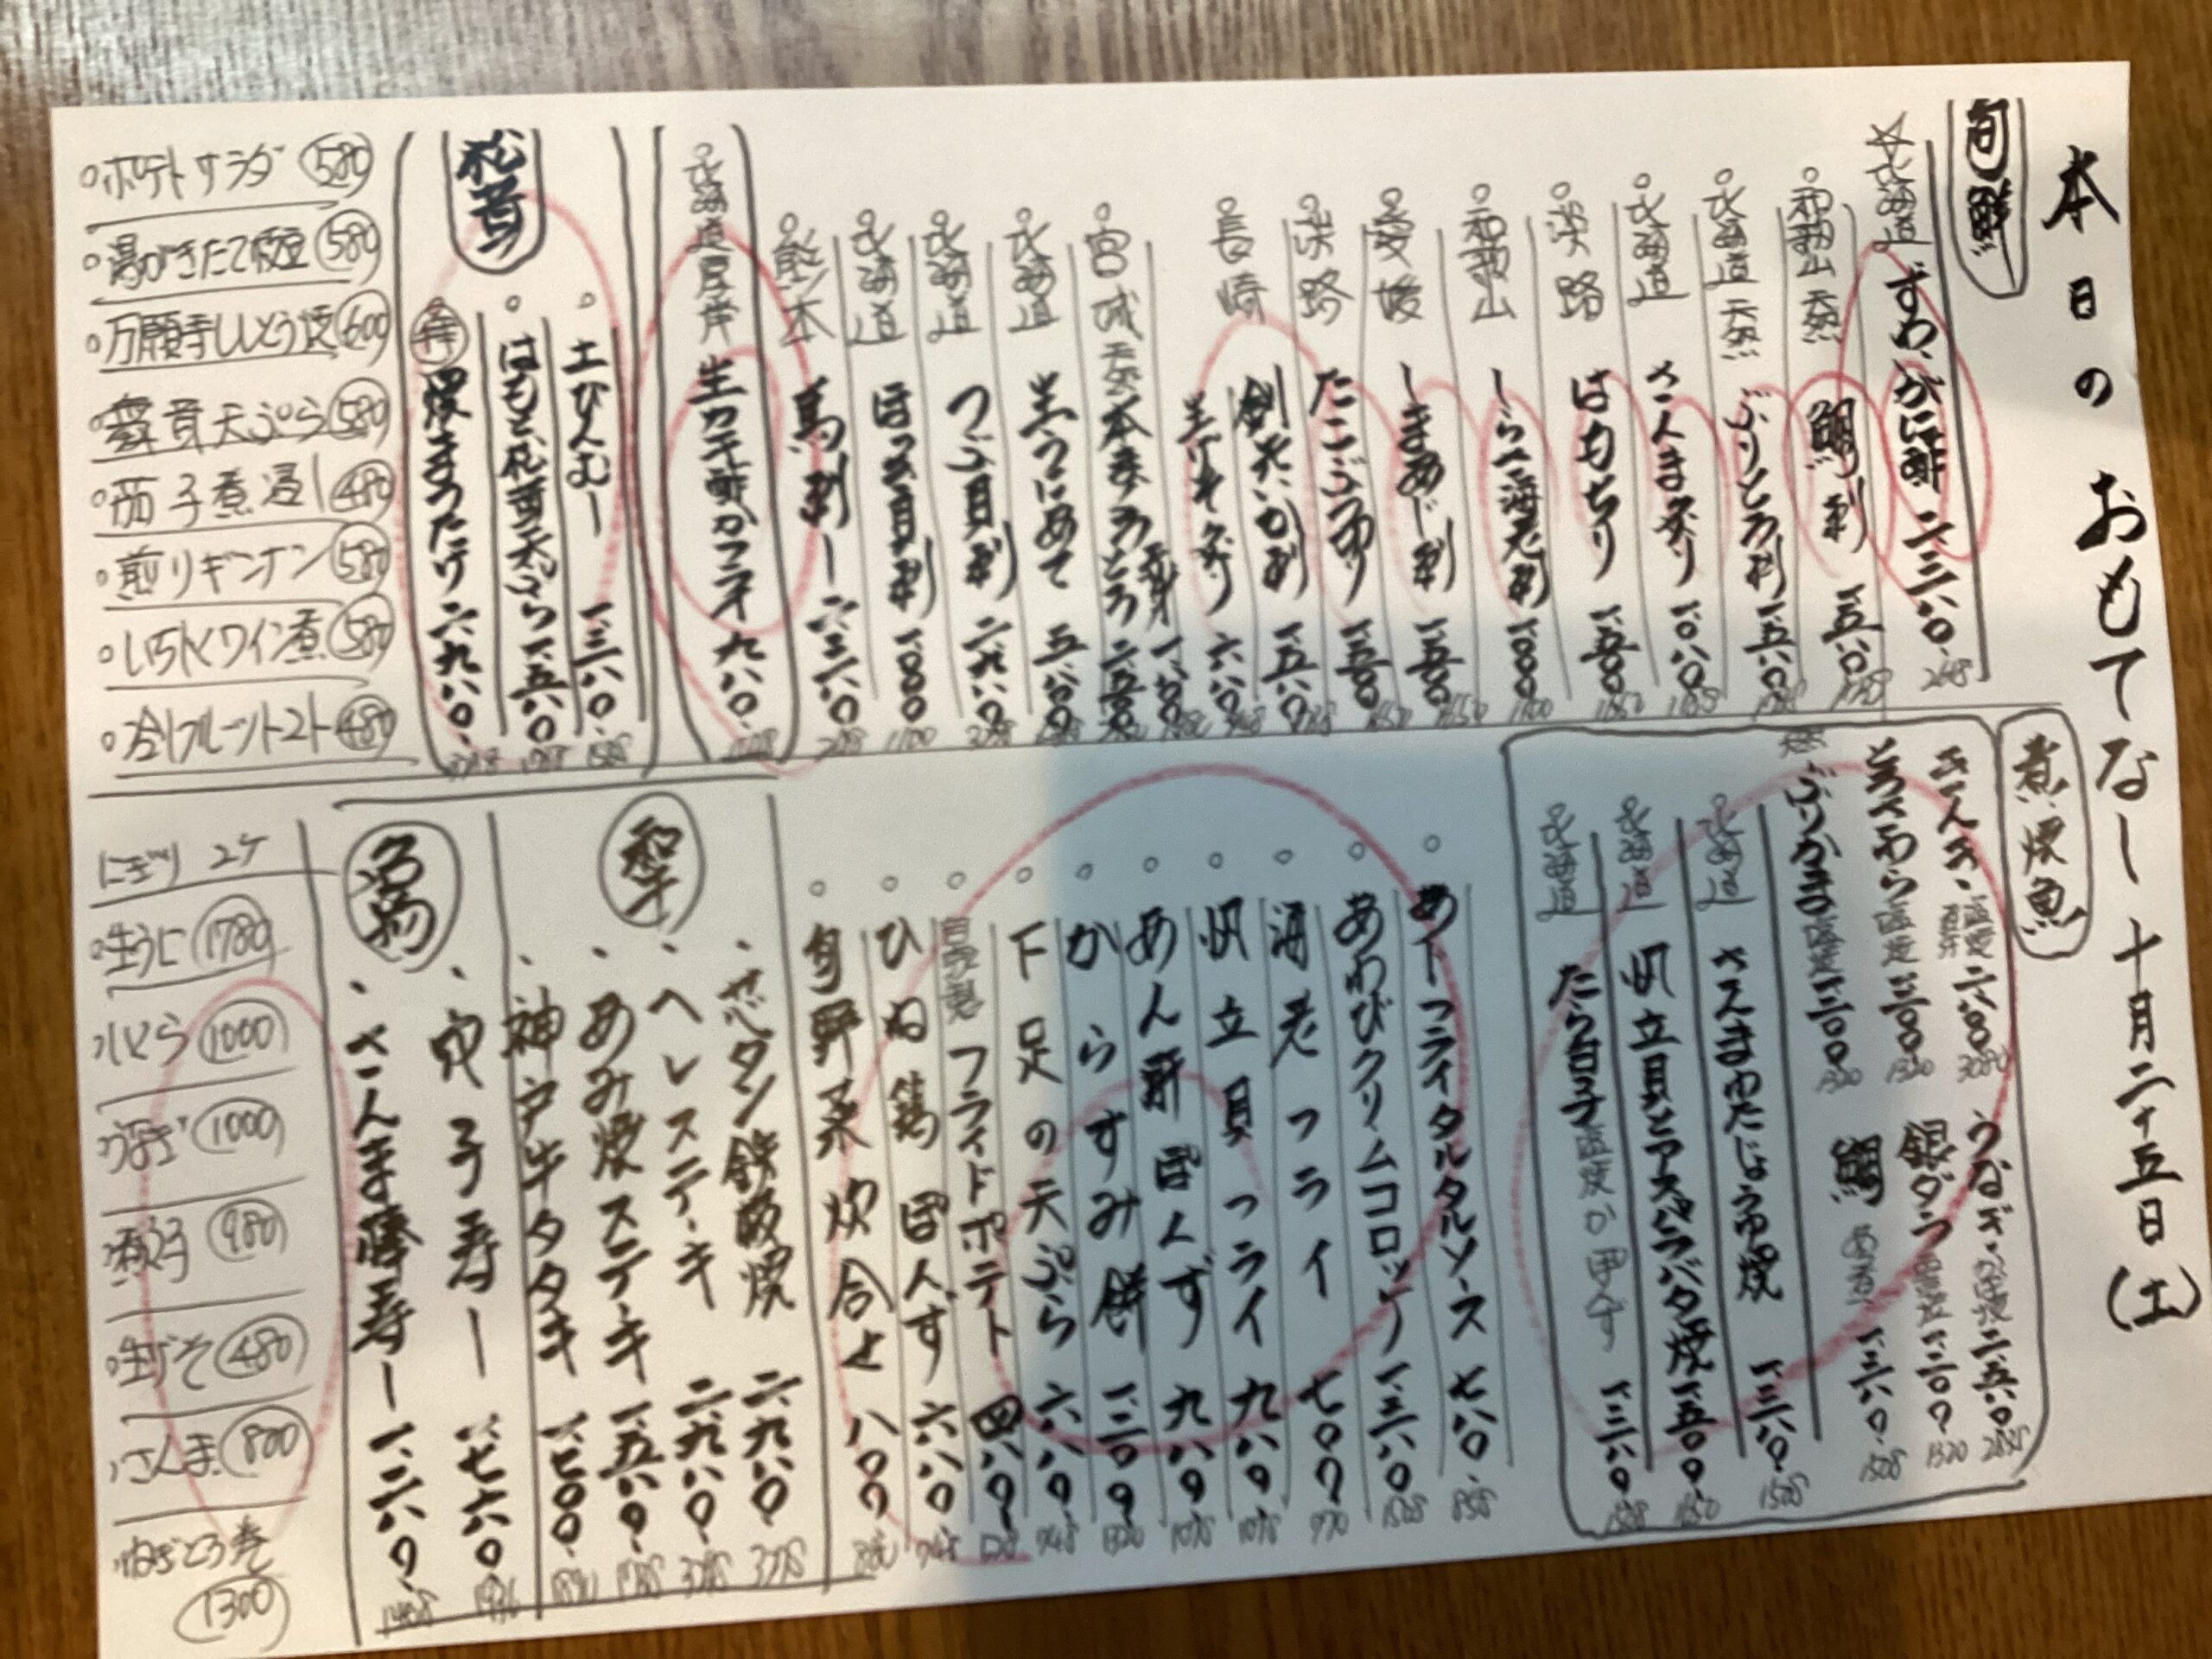 本日のおもてなし 十月二十五日(土)
旬鮮
☆北海道 ずわいがに酢 二、三八〇
和歌山 天然 鯛刺 一、五八〇
北海道 天然 ぶりとろ刺 一、五八〇
北海道 さんま造り 一、〇八〇
淡路 はもちり 一、五〇〇
和歌山 しらさ海老刺 一、〇〇〇
愛媛 しまあじ刺 一、五〇〇
淡路 たこぶつ切り 一、五〇〇
長崎 剣先いか刺 一、五八〇
宮城 天然 本まぐろ
北海道 生うに
北海道 つぶ貝刺 二、九八〇
北海道 ほっき貝刺 一、〇〇〇
熊本 馬刺し 二、三八〇
北海道厚岸 生カキ酢かフライ 九八〇
松茸
土びんむし 一、三八〇
はもと松茸天ぷら 一、五八〇
焼きまつたけ 二、九八〇
ポテトサラダ 580
湯がきたて枝豆 580
万願寺ししとう焼 600
舞茸天ぷら 580
茄子煮浸し 480
煎りギンナン 580
いちじくワイン煮 580
冷しフルーツトマト 480
煮・焼魚
さんま 塩焼
とろさわら 塩焼 一、二〇〇 1320
天然 ぶりかま 塩焼 一、二〇〇 1320
うなぎ かば焼 二、五八〇
銀ダラ 一、二〇〇 1320
鯛 あら煮 一、三八〇
北海道 さんまわたじょうゆ焼 一、三八〇
北海道 帆立貝とアスパラバター焼 一、五〇〇 1650
北海道 たら白子 塩焼かポン酢 一、三八〇
あじフライタルタルソース 七八〇 858
あわびクリームコロッケ 一、三八〇
海老フライ 七〇〇 770
帆立貝フライ 九八〇 1078
あん肝ぽんず 九八〇 1078
からすみ餅 一、二〇〇 1320
下足の天ぷら 六八〇 748
自家製 フライドポテト 四八〇 528
ひね鶏ぽんず 六八〇 748
旬野菜炊合せ 八〇〇 880
和牛
タン鉄板焼 二、九八〇 3278
ヘレステーキ 二、九八〇 3278
あみ焼ステーキ 一、五八〇
神戸牛タタキ
名物
穴子寿し 一、七六〇 1936
さんま棒寿し 一、二八〇 1408
にぎり 2ケ
生うに 1780
いくら 1000
うなぎ 1000
煮穴子 980
生げそ 480
さんま 800
ねぎとろ巻 1300